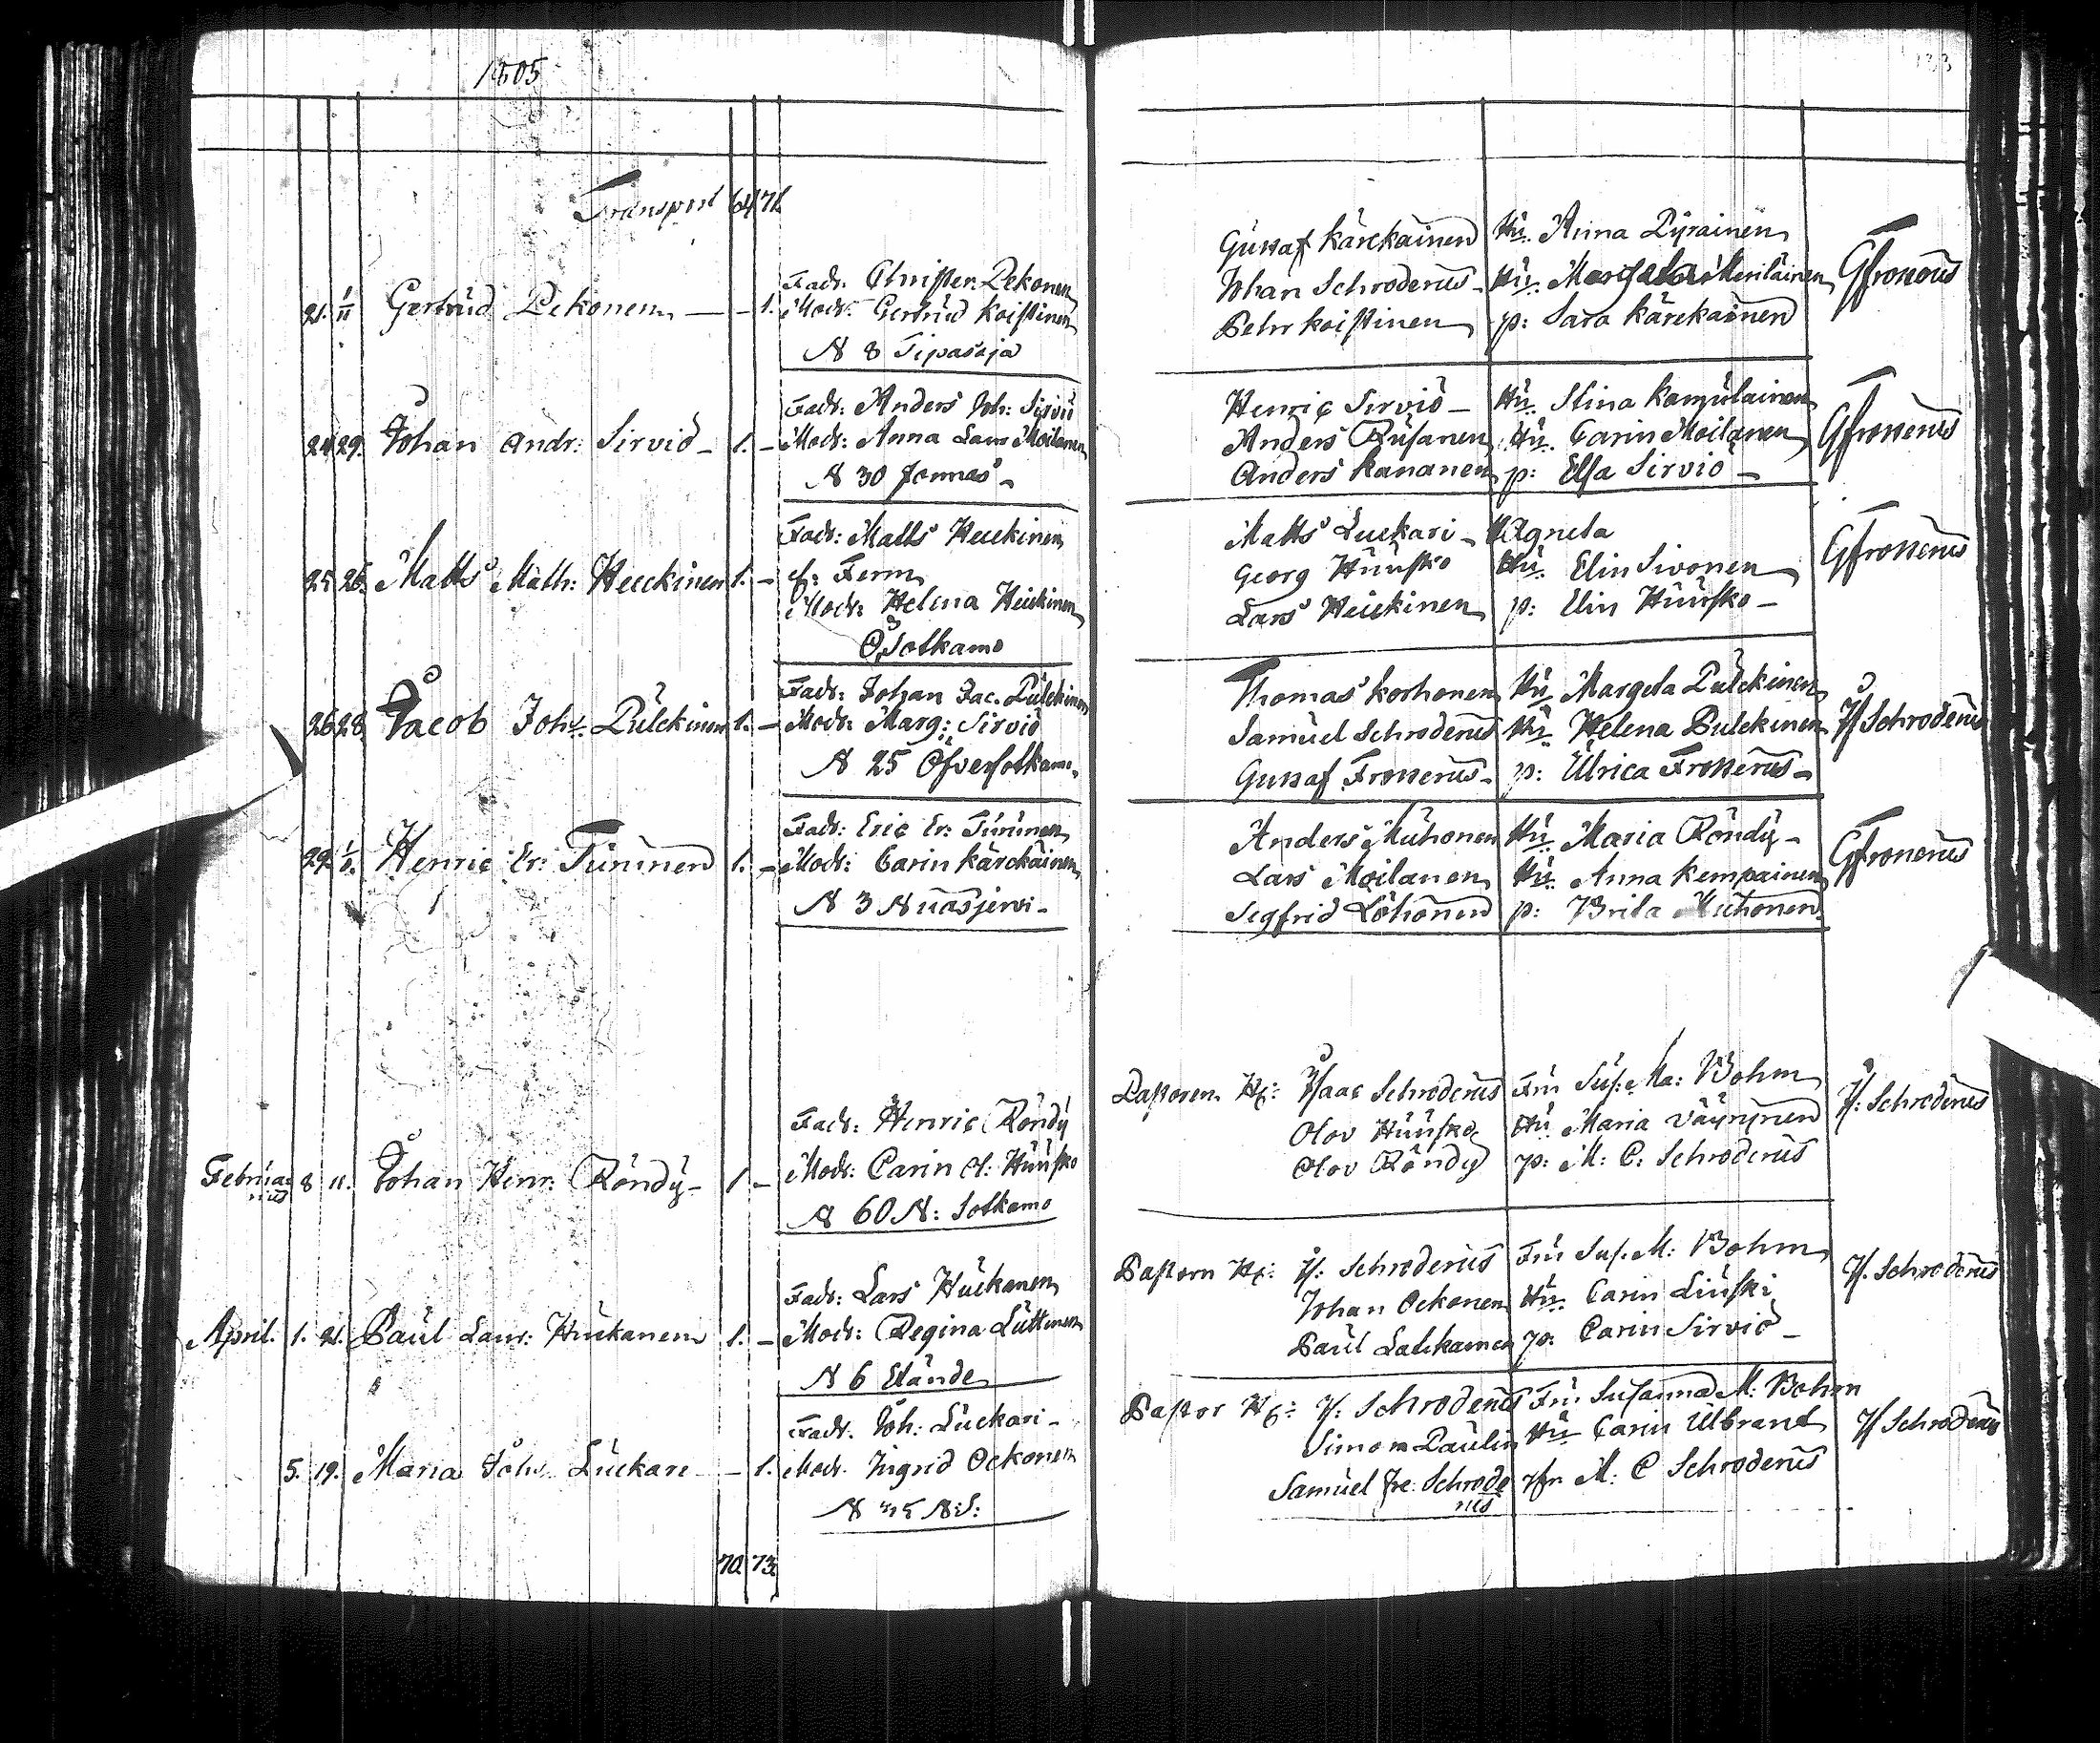 1805
Transport 64 71
21. 1/11 Gertrud Pekonen — — 1.
Fadr. Christer Pekonen
Modr. Gertrud Koistinen
N 8 Tipasoja
Gustaf Kärckainen Hu. Anna Pyrainen
Johan Schroderus - Hu. Margeta Meriläinen
Pehr Koistinen p: Sara Kärckainen
GFrosterus
24 29. Johan Andr: Sirviö - 1. -
Fadr: Anders Joh: Sirviö
Modr: Anna Lars Moilanen
N 30 Jormas -
Henric Sirviö - Hu. Stina Kamulainen
Anders Rusanen Hu. Carin Moilanen
Anders Kananen p: Elsa Sirviö -
GFrosterus
25 26. Matts Math: Heickinen 1. -
Fadr: Matts Heickinen
f: Ferm
Modr: Helena Heickinen
Ö Sotkamo
Matts Luckari - H Agneta
Georg Huusko Hu. Elin Sivonen
Lars Heickinen p: Elin Huusko -
GFrosterus
26 28. Jacob Joh: Pulckinen 1. -
Fadr: Johan Jac. Pulckinen
Modr: Marg: Sirviö
N 25 Öfversotkamo.
Thomas Korhonen Hu Margeta Pulckinen
Samuel Schroderus Hu. Helena Pulckinen
Gustaf Frosterus - p: Ulrica Frosterus -
If Schroderus
29. Henric Er: Turunen 1. -
Fadr: Eric Er: Turunen
Modr: Carin Kärckäinen
N 3 Nuasjervi -
Anders Muhonen Hu. Maria Röndy -
Lars Moilanen Hu. Anna Kempainen
Segfrid Löhönen p: Brita Muhonen.
GFrosterus
Februarius 8 11. Johan Henr: Röndy - 1. -
Fadr: Henric Röndy
Modr: Carin Ol: Huusko
N 60 N: Sotkamo
Pastoren Hr: Isaac Schroderus Fru Sus: Ma: Bohm
Olov Huusko Hu Maria Väynynen
Olov Röndy p: M: C: Schroderus
If: Schroderus
April. 1. 21. Paul Laur: Huckanen 1. -
Fadr: Lars Huckanen
Modr: Regina Luttinen
N 6 Elände
Pastorn Hr: If: Schroderus Fru Sus. M: Bohm
Johan Ockonen Hu. Carin Liuski
Paul Latckainen p: Carin Sirviö -
If. Schroderus
5. 19. Maria Joh: Luckare - 1.
Fadr. Joh: Luckari -
Modr. Ingrid Ockonen
N 35 N:S:
Pastor Hr: If: Schroderus Fru Susanna M: Bohm
Simon Paulin Hu Carin Ulbrant
Samuel Fr: Schroderus Jfr M: C Schroderus
If Schroderus
70. 73.